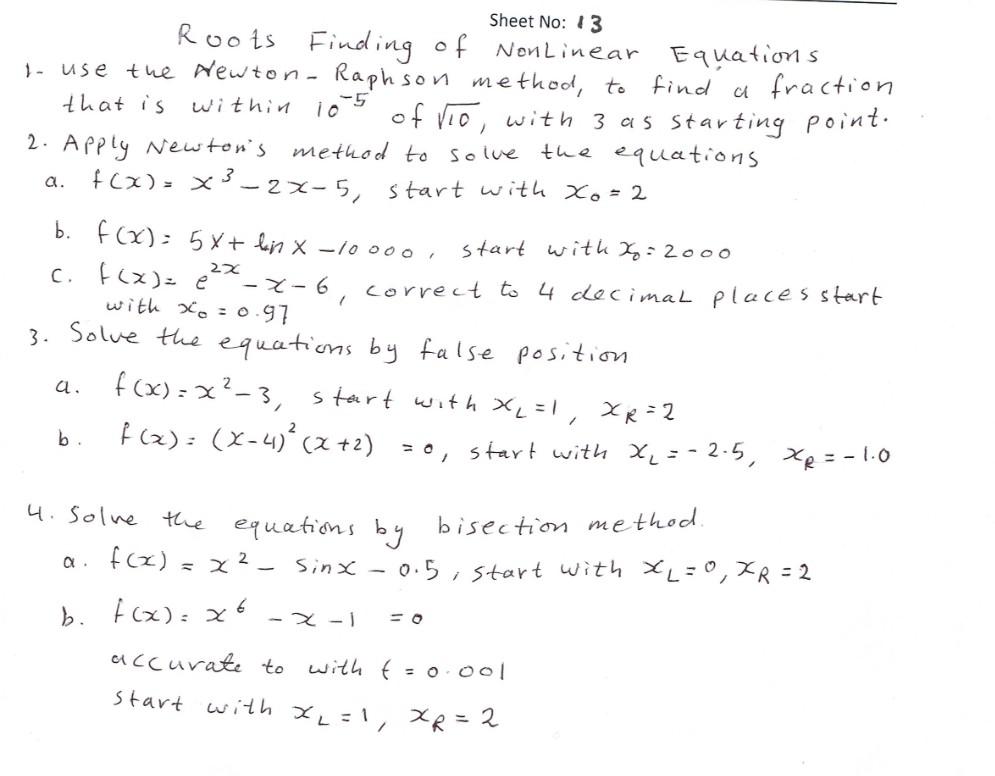 Sheet No: 13
Roots Finding of NonLinear Equations
1- use the Newton-Raphson method, to find a fraction
that is within 10⁻⁵ of √10, with 3 as starting point.
2. Apply Newton's method to solve the equations
a. f(x) = x³ - 2x - 5, start with x₀ = 2
b. f(x) = 5x + ln x - 10000, start with x₀ = 2000
c. f(x) = e²ˣ - x - 6, correct to 4 decimal places start
with x₀ = 0.97
3. Solve the equations by false position
a. f(x) = x² - 3, start with x_L = 1, x_R = 2
b. f(x) = (x-4)² (x+2) = 0, start with x_L = -2.5, x_R = -1.0
4. Solve the equations by bisection method.
a. f(x) = x² - sinx - 0.5, start with x_L = 0, x_R = 2
b. f(x) = x⁶ - x - 1 = 0
accurate to with ε = 0.001
start with x_L = 1, x_R = 2